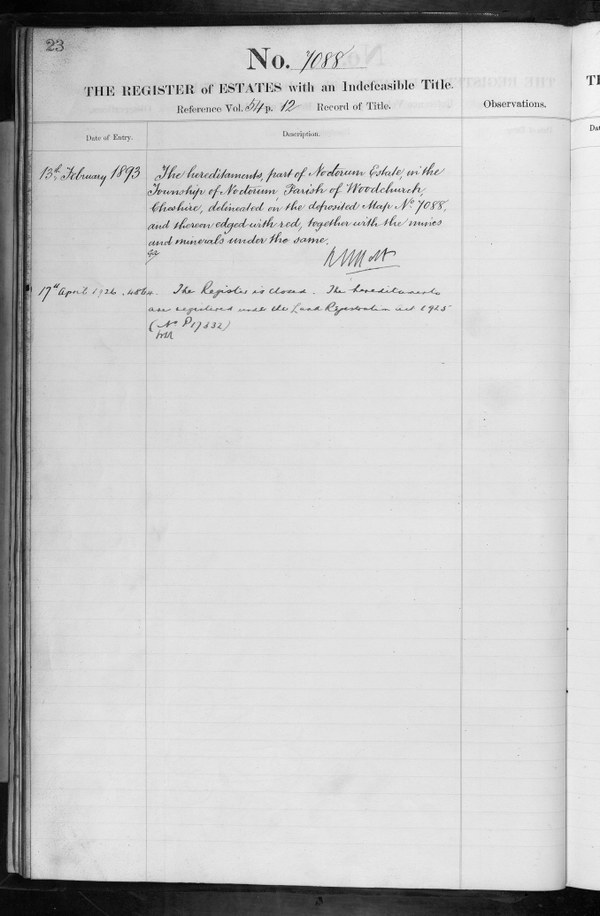 23
No. 7088
THE REGISTER of ESTATES with an Indefeasible Title.
Reference Vol. 54 p. 12 Record of Title.
Observations.
Date of Entry.
Description.
13th February 1893 The hereditaments, part of Noctorum Estate, in the
Township of Noctorum Parish of Woodchurch,
Cheshire, delineated on the deposited Map No. 7088,
and thereon edged with red, together with the mines
and minerals under the same.
17th April 1926. The Register is closed. The hereditaments
are registered under the Land Registration Act 1925
(No